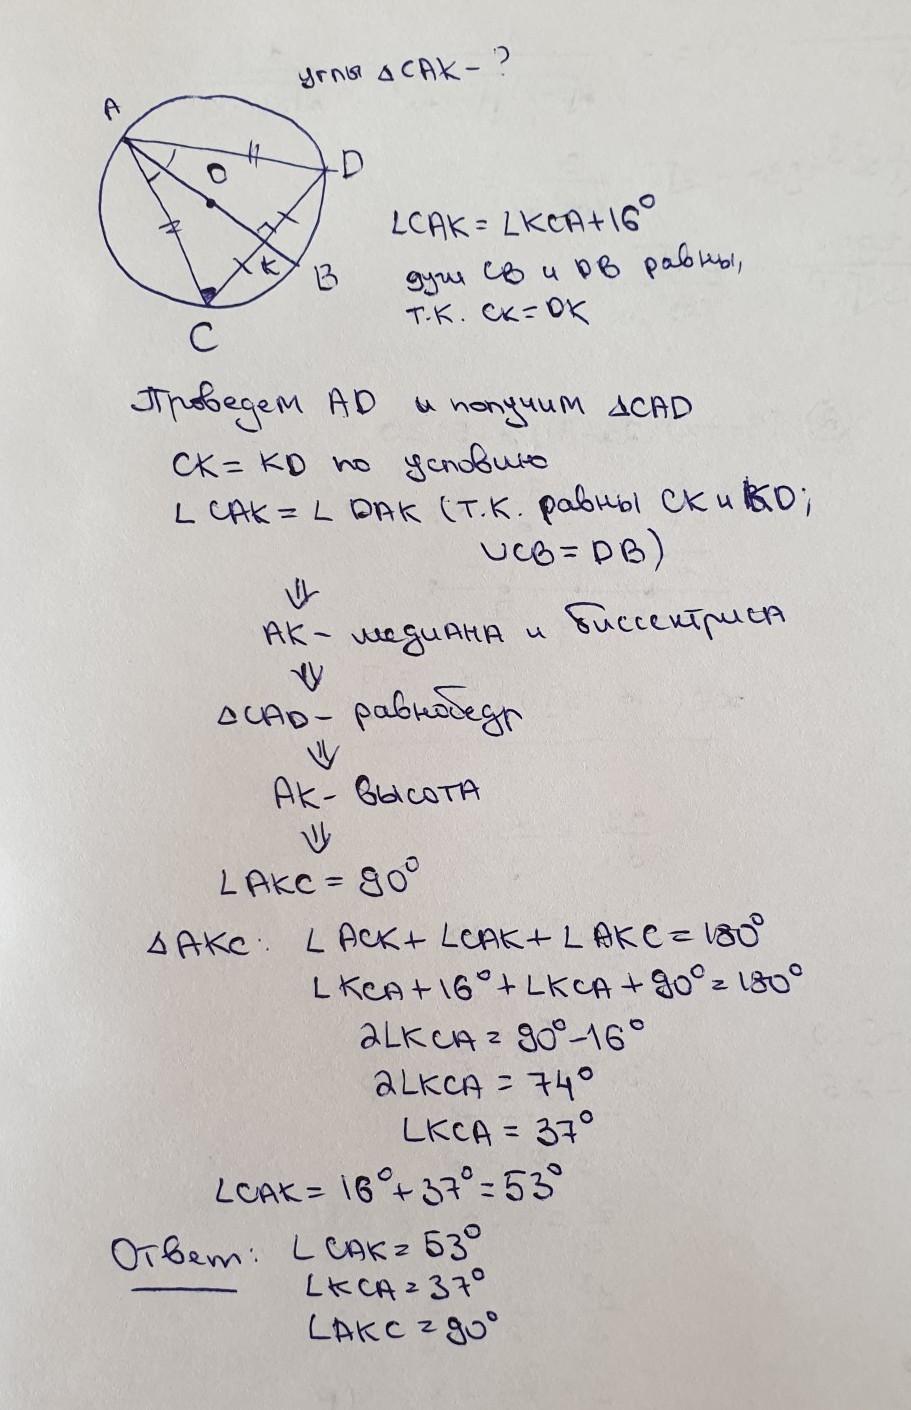 углы △CAK - ?
A
O
D
K
B
C
∠CAK = ∠KCA + 16°
дуги CB и DB равны,
т.к. CK = DK
Проведем AD и получим △CAD
CK = KD по условию
∠CAK = ∠DAK (т.к. равны CK и KD;
∪CB = DB)
⇓
AK - медиана и биссектриса
⇓
△CAD - равнобедр
⇓
AK - высота
⇓
∠AKC = 90°
△AKC: ∠ACK + ∠CAK + ∠AKC = 180°
∠KCA + 16° + ∠KCA + 90° = 180°
2∠KCA = 90° - 16°
2∠KCA = 74°
∠KCA = 37°
∠CAK = 16° + 37° = 53°
Ответ: ∠CAK = 53°
∠KCA = 37°
∠AKC = 90°